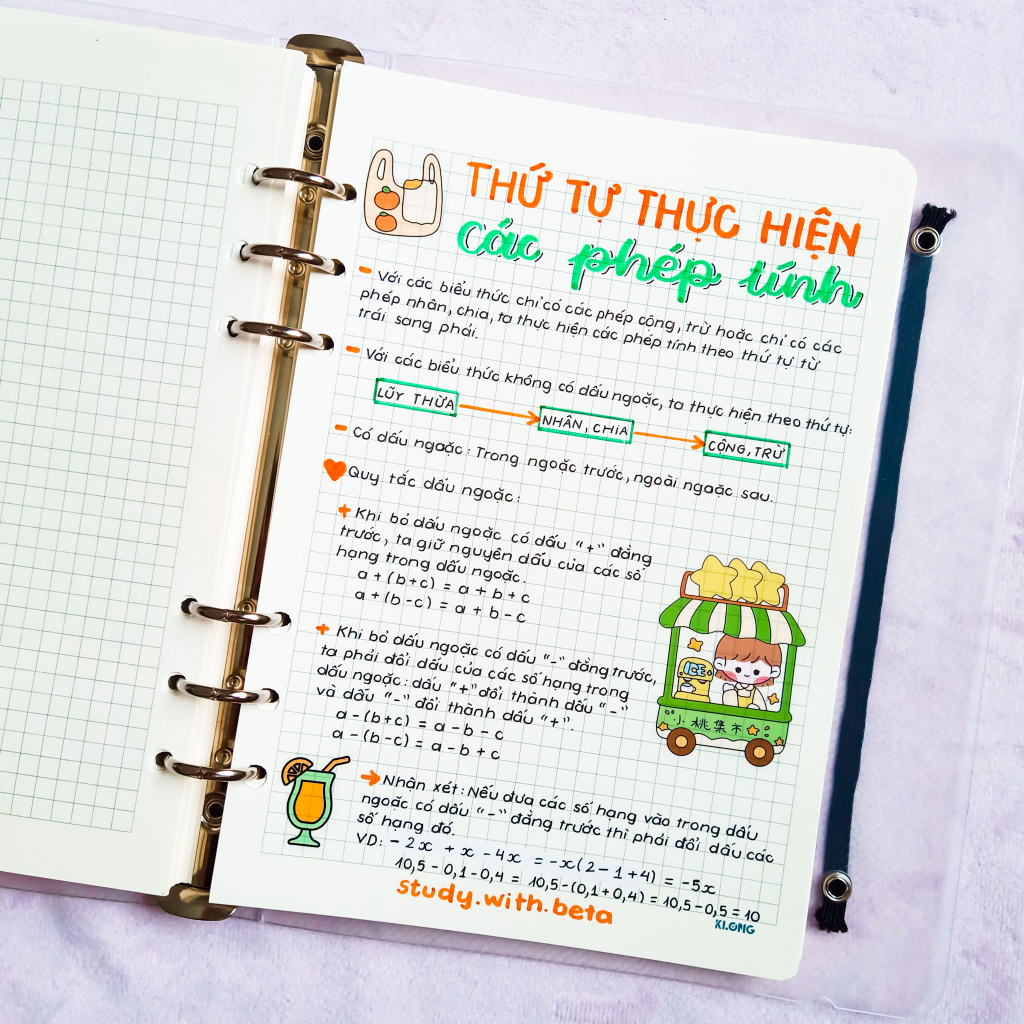 THỨ TỰ THỰC HIỆN
các phép tính
- Với các biểu thức chỉ có các phép cộng, trừ hoặc chỉ có các
phép nhân, chia, ta thực hiện các phép tính theo thứ tự từ
trái sang phải.
- Với các biểu thức không có dấu ngoặc, ta thực hiện theo thứ tự:
LŨY THỪA → NHÂN, CHIA → CỘNG, TRỪ
- Có dấu ngaặc: Trong ngoặc trước, ngoài ngaặc sau.
Quy tắc dấu ngoặc:
+ Khi bỏ dấu ngoặc có dấu "+" đằng
trước, ta giữ nguyên dấu của các số
hạng trong dấu ngoặc.
a + (b+c) = a + b + c
a + (b-c) = a + b - c
+ Khi bỏ dấu ngoặc có dấu "-" đằng trước,
ta phải đổi dấu của các số hạng trong
dấu ngoặc: dấu "+" đổi thành dấu "-"
và dấu "-" đổi thành dấu "+".
a - (b+c) = a - b - c
a - (b-c) = a - b + c
ICE
小桃集市
→ Nhận xét: Nếu đưa các số hạng vào trong dấu
ngoặc có dấu "-" đằng trước thì phải đổi dấu các
số hạng đó.
VD: - 2x + x - 4x = -x(2-1+4) = -5x
10,5 - 0,1 - 0,4 = 10,5 - (0,1+0,4) = 10,5 - 0,5 = 10
study.with.beta
KLONG